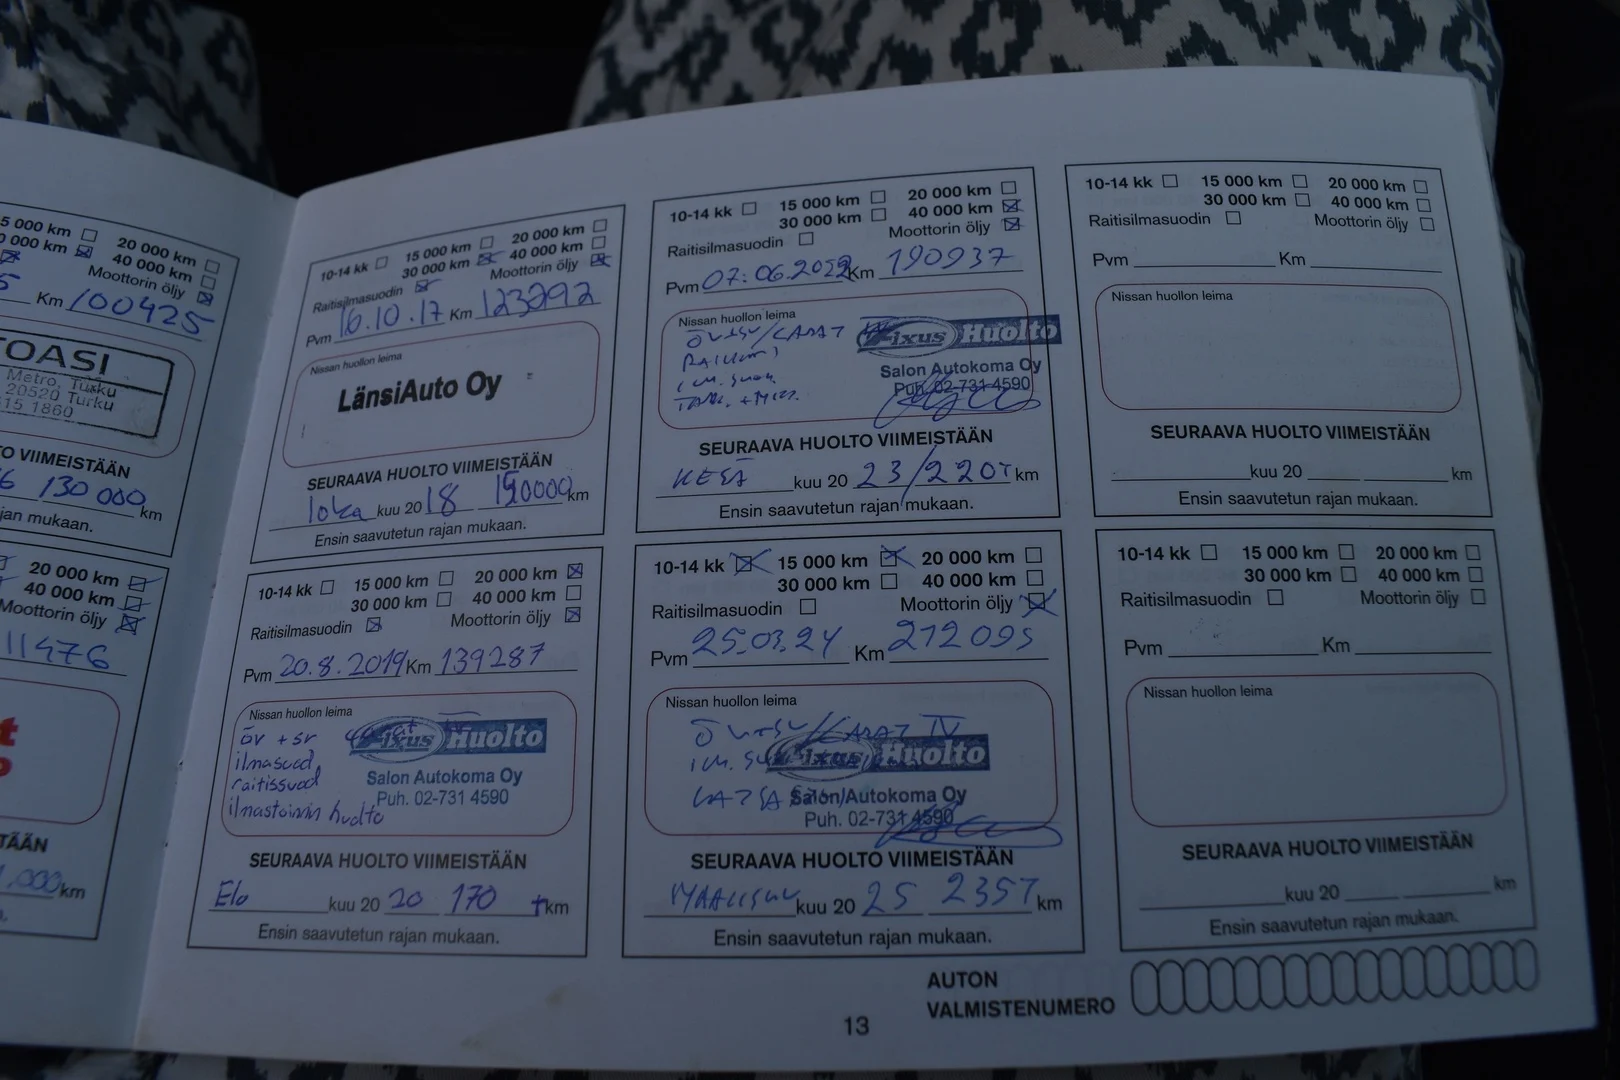 5 000 km 20 000 km
0 000 km 40 000 km
Moottorin öljy
5 Km 100425
TOASI
Metro, Turku
20520 Turku
515 1860
O VIIMEISTÄÄN
6 130 000 km
jan mukaan.
20 000 km
40 000 km
Moottorin öljy
11476
STÄÄN
1.000 km
10-14 kk 15 000 km 20 000 km
30 000 km 40 000 km
Raitisilmasuodin Moottorin öljy
Pvm 16.10.17 Km 123292
Nissan huollon leima
LänsiAuto Oy
SEURAAVA HUOLTO VIIMEISTÄÄN
loka kuu 20 18 150000 km
Ensin saavutetun rajan mukaan.
10-14 kk 15 000 km 20 000 km
30 000 km 40 000 km
Raitisilmasuodin Moottorin öljy
Pvm 20.8.2019 Km 139287
Nissan huollon leima
öv + sv
ilmasuod.
raitissuod
ilmastoinnin huolto
Fixus Huolto
Salon Autokoma Oy
Puh. 02-731 4590
SEURAAVA HUOLTO VIIMEISTÄÄN
Elo kuu 20 20 170 tkm
Ensin saavutetun rajan mukaan.
10-14 kk 15 000 km 20 000 km
30 000 km 40 000 km
Raitisilmasuodin Moottorin öljy
Pvm 07.06.2022 Km 190937
Nissan huollon leima
Fixus Huolto
Salon Autokoma Oy
Puh. 02-731 4590
SEURAAVA HUOLTO VIIMEISTÄÄN
KESÄ kuu 20 23/220T km
Ensin saavutetun rajan mukaan.
10-14 kk 15 000 km 20 000 km
30 000 km 40 000 km
Raitisilmasuodin Moottorin öljy
Pvm 25.03.24 Km 212095
Nissan huollon leima
Fixus Huolto
Salon Autokoma Oy
Puh. 02-731 4590
SEURAAVA HUOLTO VIIMEISTÄÄN
MAALISKU kuu 20 25 235T km
Ensin saavutetun rajan mukaan.
10-14 kk 15 000 km 20 000 km
30 000 km 40 000 km
Raitisilmasuodin Moottorin öljy
Pvm Km
Nissan huollon leima
SEURAAVA HUOLTO VIIMEISTÄÄN
kuu 20 km
Ensin saavutetun rajan mukaan.
10-14 kk 15 000 km 20 000 km
30 000 km 40 000 km
Raitisilmasuodin Moottorin öljy
Pvm Km
Nissan huollon leima
SEURAAVA HUOLTO VIIMEISTÄÄN
kuu 20 km
Ensin saavutetun rajan mukaan.
AUTON
VALMISTENUMERO
13